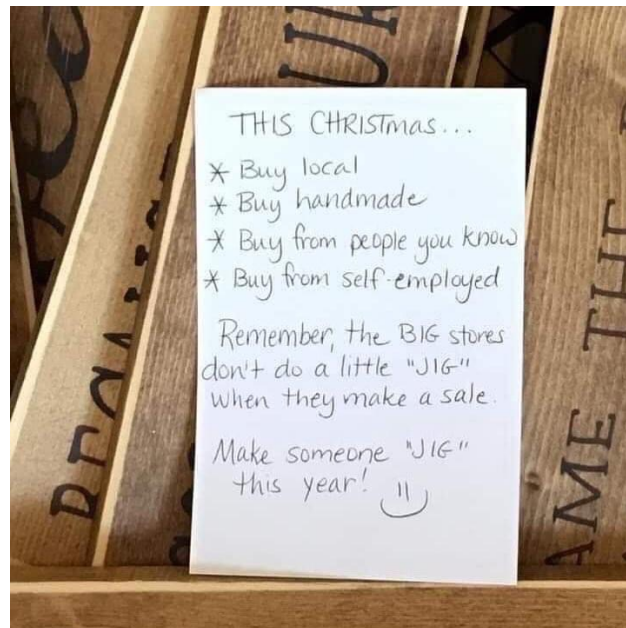 THIS CHRISTmas...
* Buy local
* Buy handmade
* Buy from people you know
* Buy from self-employed
Remember, the BIG stores
don't do a little "JIG"
when they make a sale.
Make someone "JIG"
this year!
AME THE